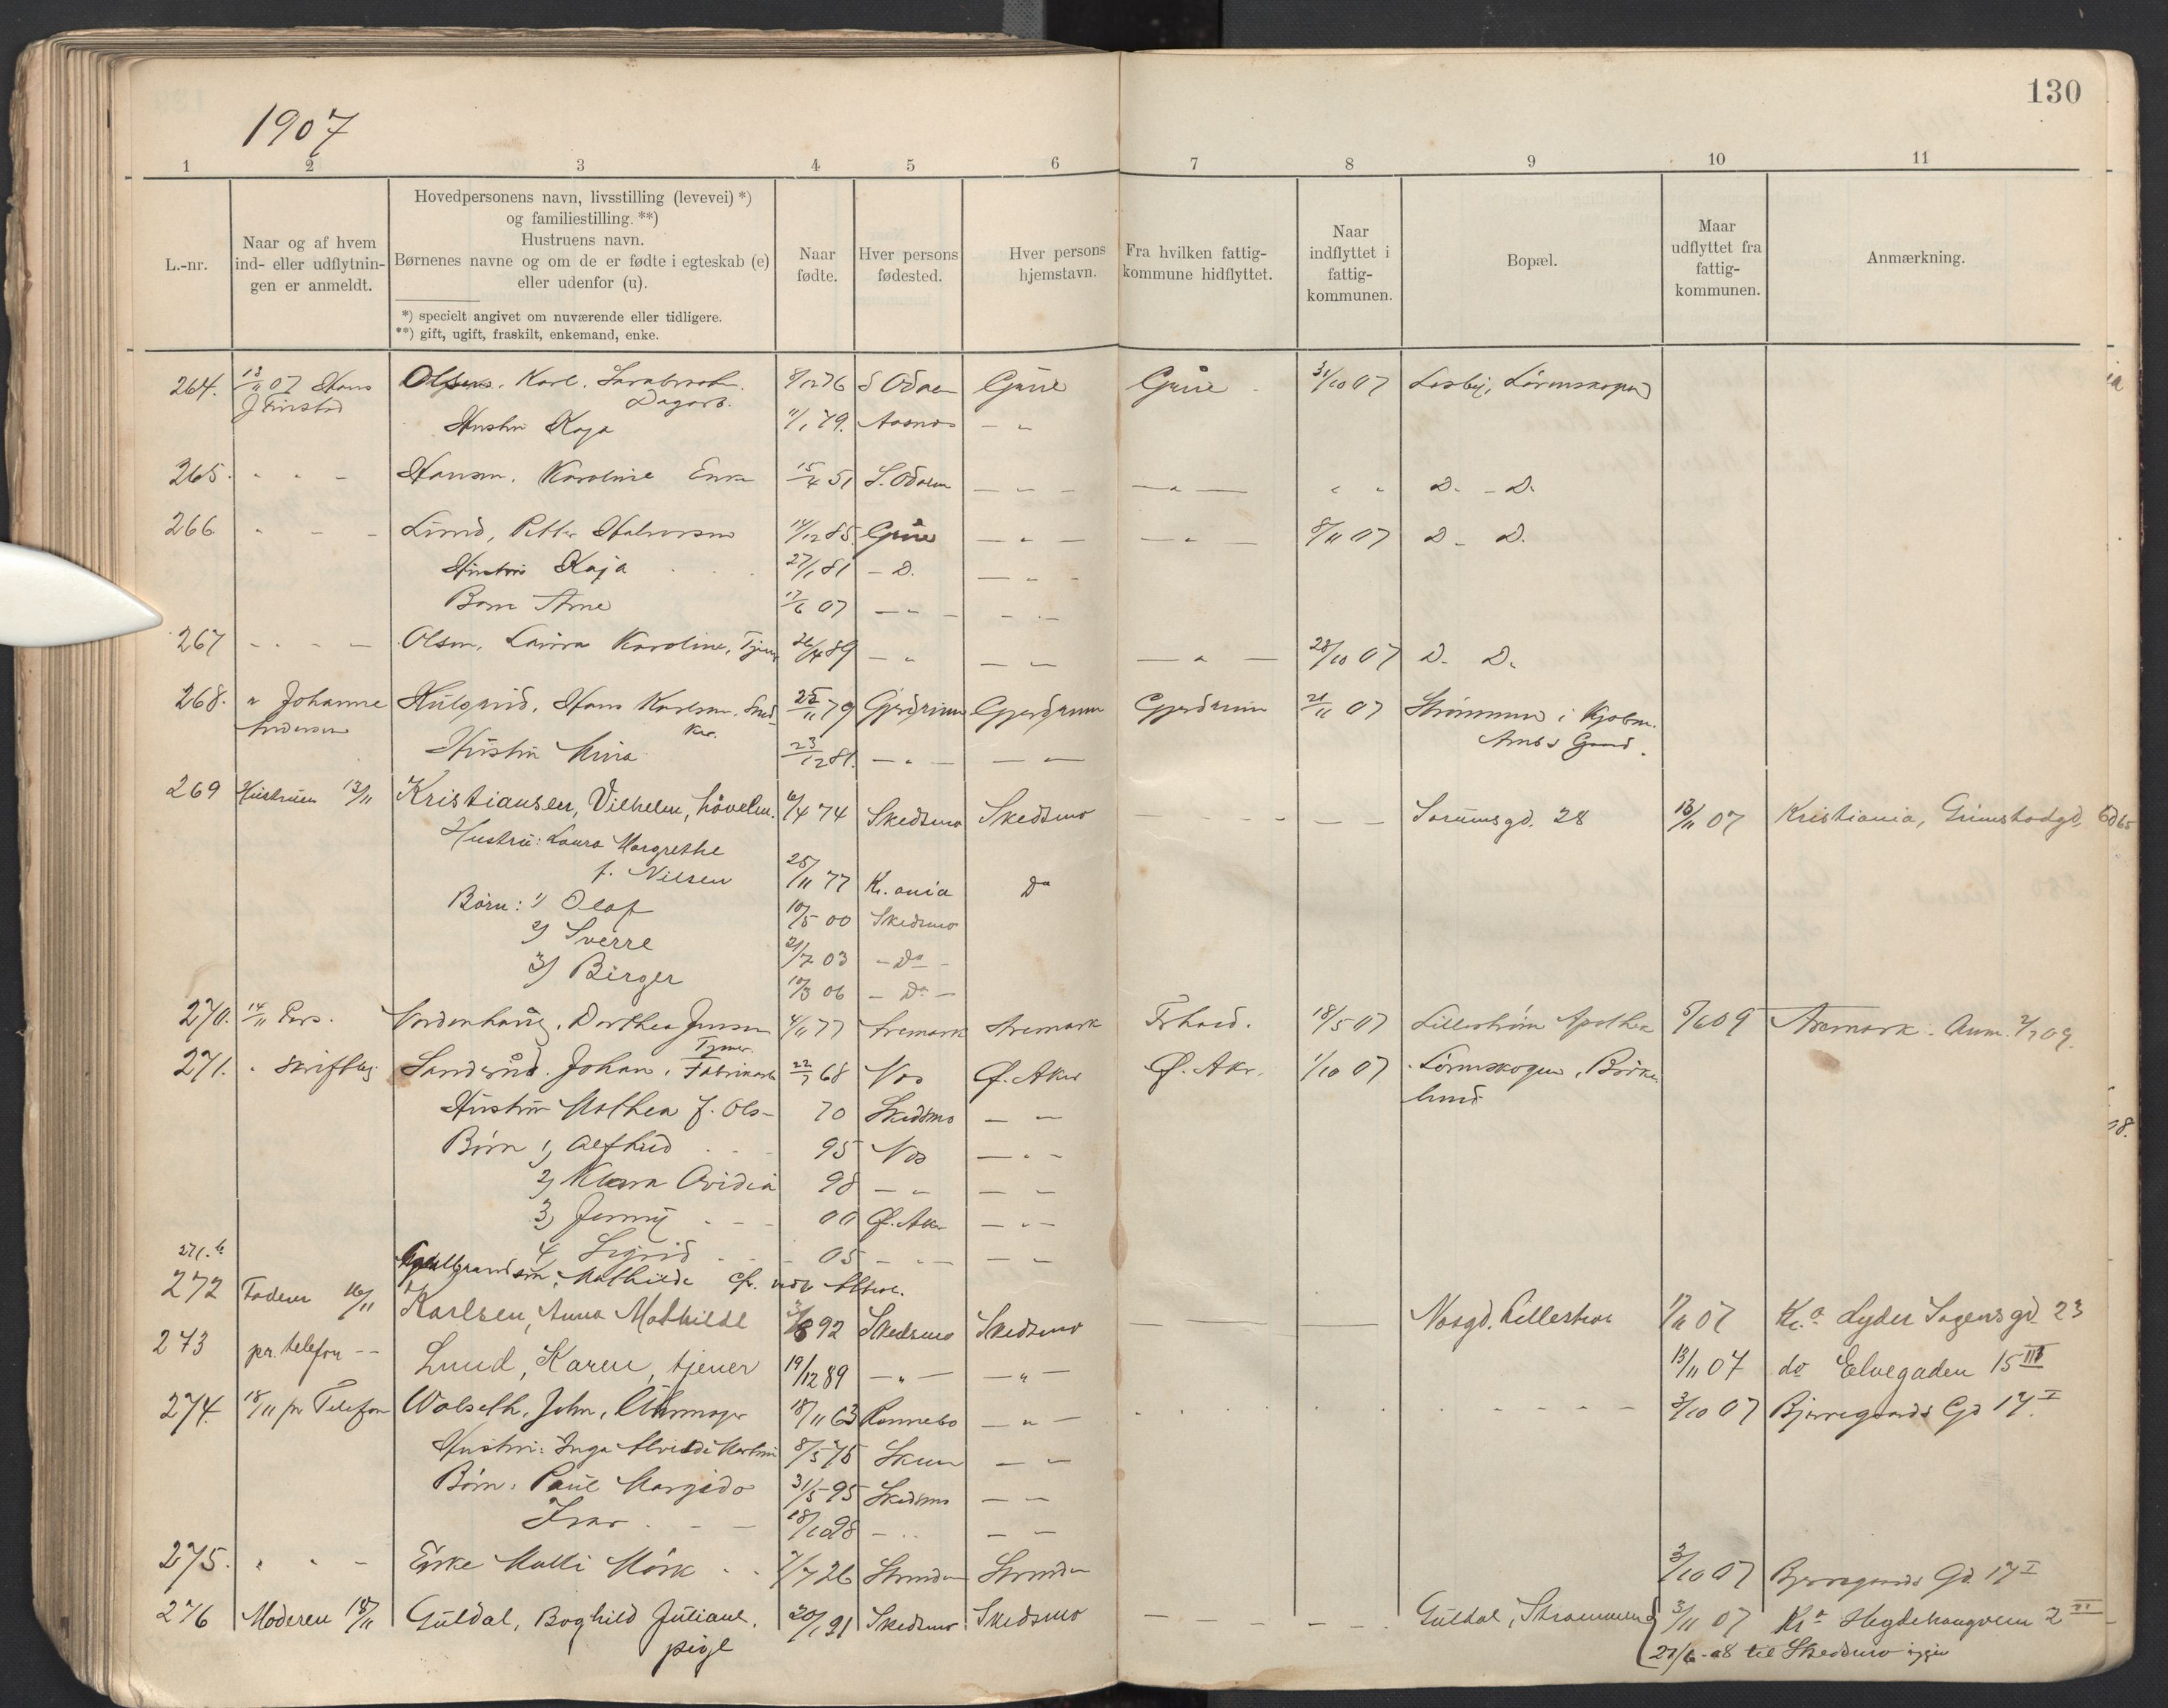 130
1907
1 2 3 4 5 6 7 8 9 10 11
L.-nr.
Naar og af hvem
ind- eller udflytnin-
gen er anmeldt.
Hovedpersonens navn, livsstilling (levevei) *)
og familiestilling. **)
Hustruens navn.
Børnenes navne og om de er fødte i egteskab (e)
eller udenfor (u).
*) specielt angivet om nuværende eller tidligere.
**) gift, ugift, fraskilt, enkemand, enke.
Naar
fødte.
Hver persons
fødested.
Hver persons
hjemstavn.
Fra hvilken fattig-
kommune hidflyttet.
Naar
indflyttet i
fattig-
kommunen.
Bopæl.
Maar
udflyttet fra
fattig-
kommunen.
Anmærkning.
264. 13/11 07 Hans Olsen, Karl. 8/12 76 S Odalen Grue Grue 31/10 07 Losby, Lørenskogen
J Finstad Dagarb.
Hustru Kaja 11/1 79. Aasnes — "
265. " " – Hansen, Karoline Enke 15/4 51 S. Odalen — " — — " — " " D. – D.
266 " – – Lund, Petter Halvorsen 14/12 85 Grue — " — — " — 8/11 07 D – D.
Hustru Kaja 27/1 81 – D. — " –
Barn Arne 17/6 07 — " – – " –
267 – " – — Olsen, Laura Karoline, Tjener 26/4 89 — " — " — " — 28/10 07 D. D.
268. " Johanne Hans Karlsen, Sned 25/11 79 Gjerdrum Gjerdrum Gjerdrum 21/11 07 Strømmen i Kjøbm.
Andersen ker. Gaard.
Hustru Mina 23/12 81. — " — — "
269 Hustruen 13/11 Kristiansen, Vilhelm, høvelm. 6/4 74 Skedsmo Skedsmo — – – – — — Sørumsgd. 28 13/11 07 Kristiania, Grimstadgd,
Hustru: Laura Margrethe
f. Nilsen 25/11 77 Kr.ania Do
Børn: 1) Olaf 10/5 00 Skedsmo
2) Sverre 21/7 03 – Do –
3) Birger 10/3 06 – Do –
270. 14/11 Pers. Nordenhaug, Dorthea Jensen 4/11 77 Aremark Aremark Frhald. 18/5 07 Lillestrøm Apothek 5/6 09 Aremark. Anm. 2/7 09.
Tjener.
271. " skriftlig Sanderud, Johan, Fabrikarb 22/7 68 Nes Ø. Aker Ø. Aker. 1/10 07 Lørenskogen, Birke
lund
Hustru Mathea f. Ols– 70 Skedsmo — "
Børn 1) Alfhild 95 Nes — " –
2) Klara Ovidia 98 — " — "
3) Jenny 00 Ø. Aker — " –
4) Sigrid 05 — " – — "
271.b Mathilde
272 Faderen 16/11 Karlsen, Anna Mathilde 3/8 92 Skedsmo Skedsmo — — — Nesgd. Lillestrøm 17/11 07 Kr.a Lyder Sagensgd 23
273 pr. telefon – – Lund, Karen, tjener 19/12 89 — " — — " — 13/11 07 do Elvegaden 15 III
274. 18/11 pr Telefon Wolseth, John, Uhrmager 18/11 63 Rennebo — " — 3/10 07 Bjerregaards Gd 17 I
Hustru: Inga Alvilde 8/5 75 Skeun — "
Børn: Paul Margido 31/5 95 Skedsmo — "
Ivar 18/10 98 – " — "
275. " " – Enke Malli Mørk 7/7 26 Strinden Strinden 3/10 07 Bjerregaards Gd. 17 I
276 Moderen 18/11 Guldal, Boghild Juliane, 20/1 91 Skedsmo Skedsmo — – – — Guldal, Strømmen 3/11 07 Kr a Hegdehaugveien 2 III
pige 27/6 - 08 til Skedsmo igjen